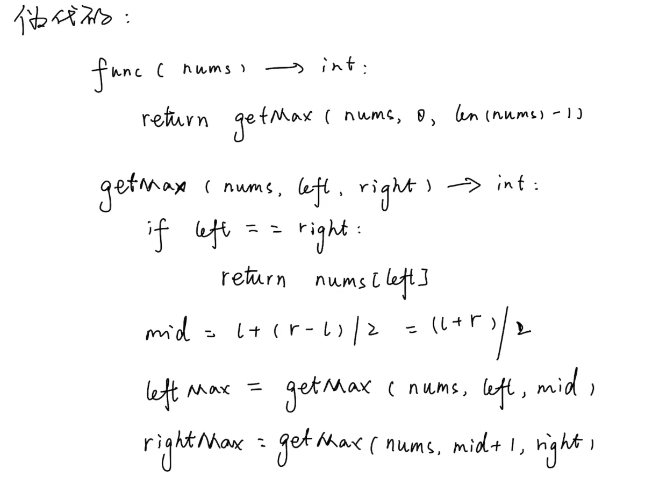 伪代码：
func ( nums ) → int :
return getMax ( nums, 0, len(nums) - 1)
getMax ( nums, left, right ) → int :
if left == right :
return nums[left]
mid = l + ( r - l ) / 2 = (l + r) / 2
leftMax = getMax ( nums, left, mid )
rightMax = getMax ( nums, mid + 1, right )